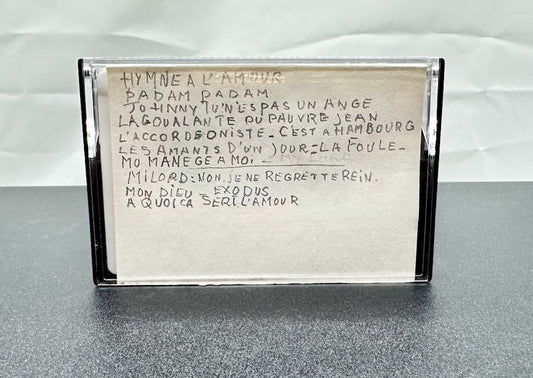 HYMNE A L'AMOUR
PADAM PADAM
JOHNNY TU N'ES PAS UN ANGE
LA GOUALANTE DU PAUVRE JEAN
L'ACCORDEONISTE - C'EST A HAMBOURG
LES AMANTS D'UN JOUR = LA FOULE -
MO MANEGE A MOI
MILORD = NON, JE NE REGRETTE REIN.
MON DIEU - EXODUS
A QUOI CA SERT L'AMOUR